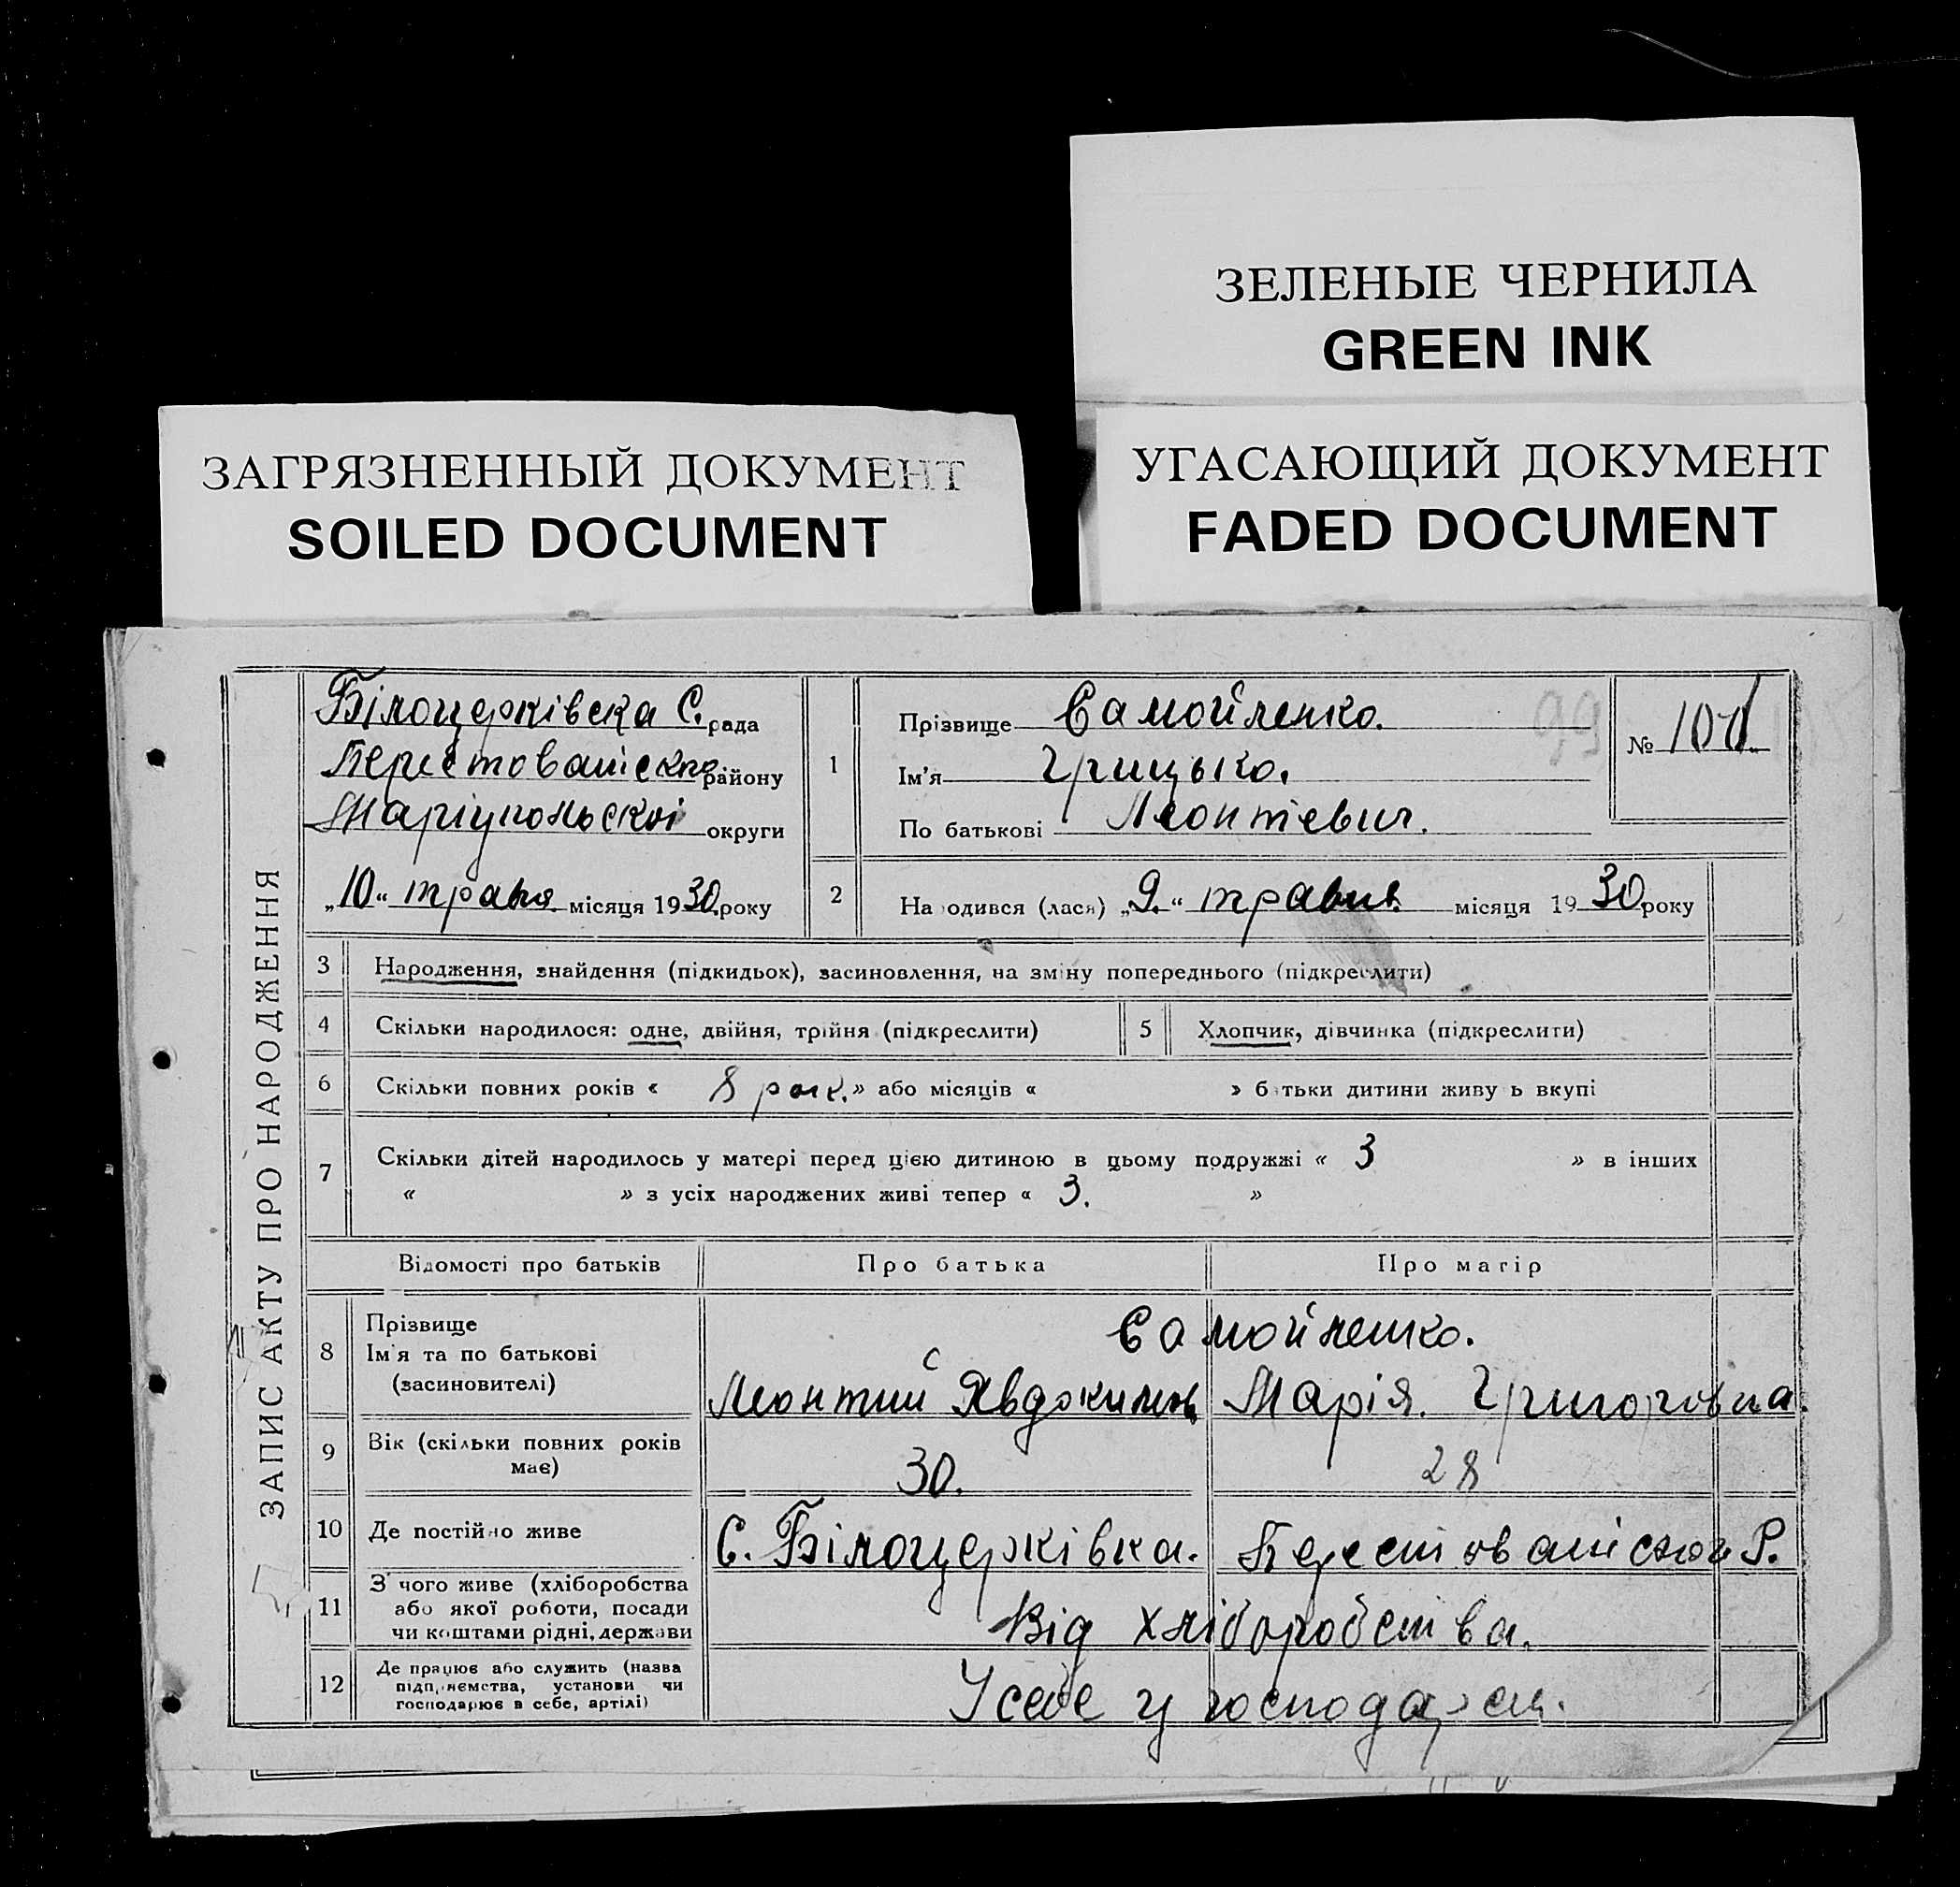 ЗЕЛЕНЫЕ ЧЕРНИЛА
GREEN INK
ЗАГРЯЗНЕННЫЙ ДОКУМЕНТ
SOILED DOCUMENT
УГАСАЮЩИЙ ДОКУМЕНТ
FADED DOCUMENT
ЗАПИС АКТУ ПРО НАРОДЖЕННЯ
Білоцерківска С. рада
району
Маріупольскої округи
„10“ травня місяця 1930 року
1
Прізвище Самойленко.
Ім'я Грицько.
По батькові Леонтієвич.
99
№
2
Народився (лася) „9.“ травня місяця 1930 року
3 Народження, знайдення (підкидьок), засиновлення, на зміну попереднього (підкреслити)
4 Скільки народилося: одне, двійня, трійня (підкреслити)
5 Хлопчик, дівчинка (підкреслити)
6 Скільки повних років « 8 рок. » або місяців « » батьки дитини живуть вкупі
7 Скільки дітей народилось у матері перед цією дитиною в цьому подружжі « 3 » в інших
« » з усіх народжених живі тепер « 3. »
Відомості про батьків Про батька Про матір
8 Прізвище
Ім'я та по батькові
(засновителі)
Самойленко.
Леонтий Явдокимов Марія. Григоровна.
9 Вік (скільки повних років має) 30. 28
10 Де постійно живе С. Білоцерківка. Р.
11 З чого живе (хліборобства
або якої роботи, посади
чи коштами рідні, держави
Від хліборобства.
12 Де працює або служить (назва
підприємства, установи чи
господарює в себе, артілі)
У себе у господарси.